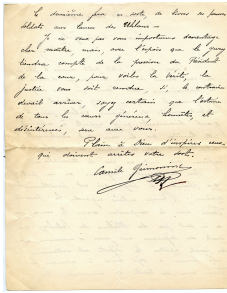 Le deuxième fera en sorte, de
soldats aux lueurs de
Je ne veux pas vous importuner davantage
cher maître mais, avec l'espoir que le jury
tiendra compte de la pression du Président
de la cour, pour voiler la vérité, la
justice vous soit rendue, si, le contraire
devait arriver soyez certain que l'estime
de tous les cœurs généreux, honnêtes, et
désintéressés, sera avec vous.
Plaise à Dieu d'inspirer ceux
qui doivent arrêter votre sort.
Camille